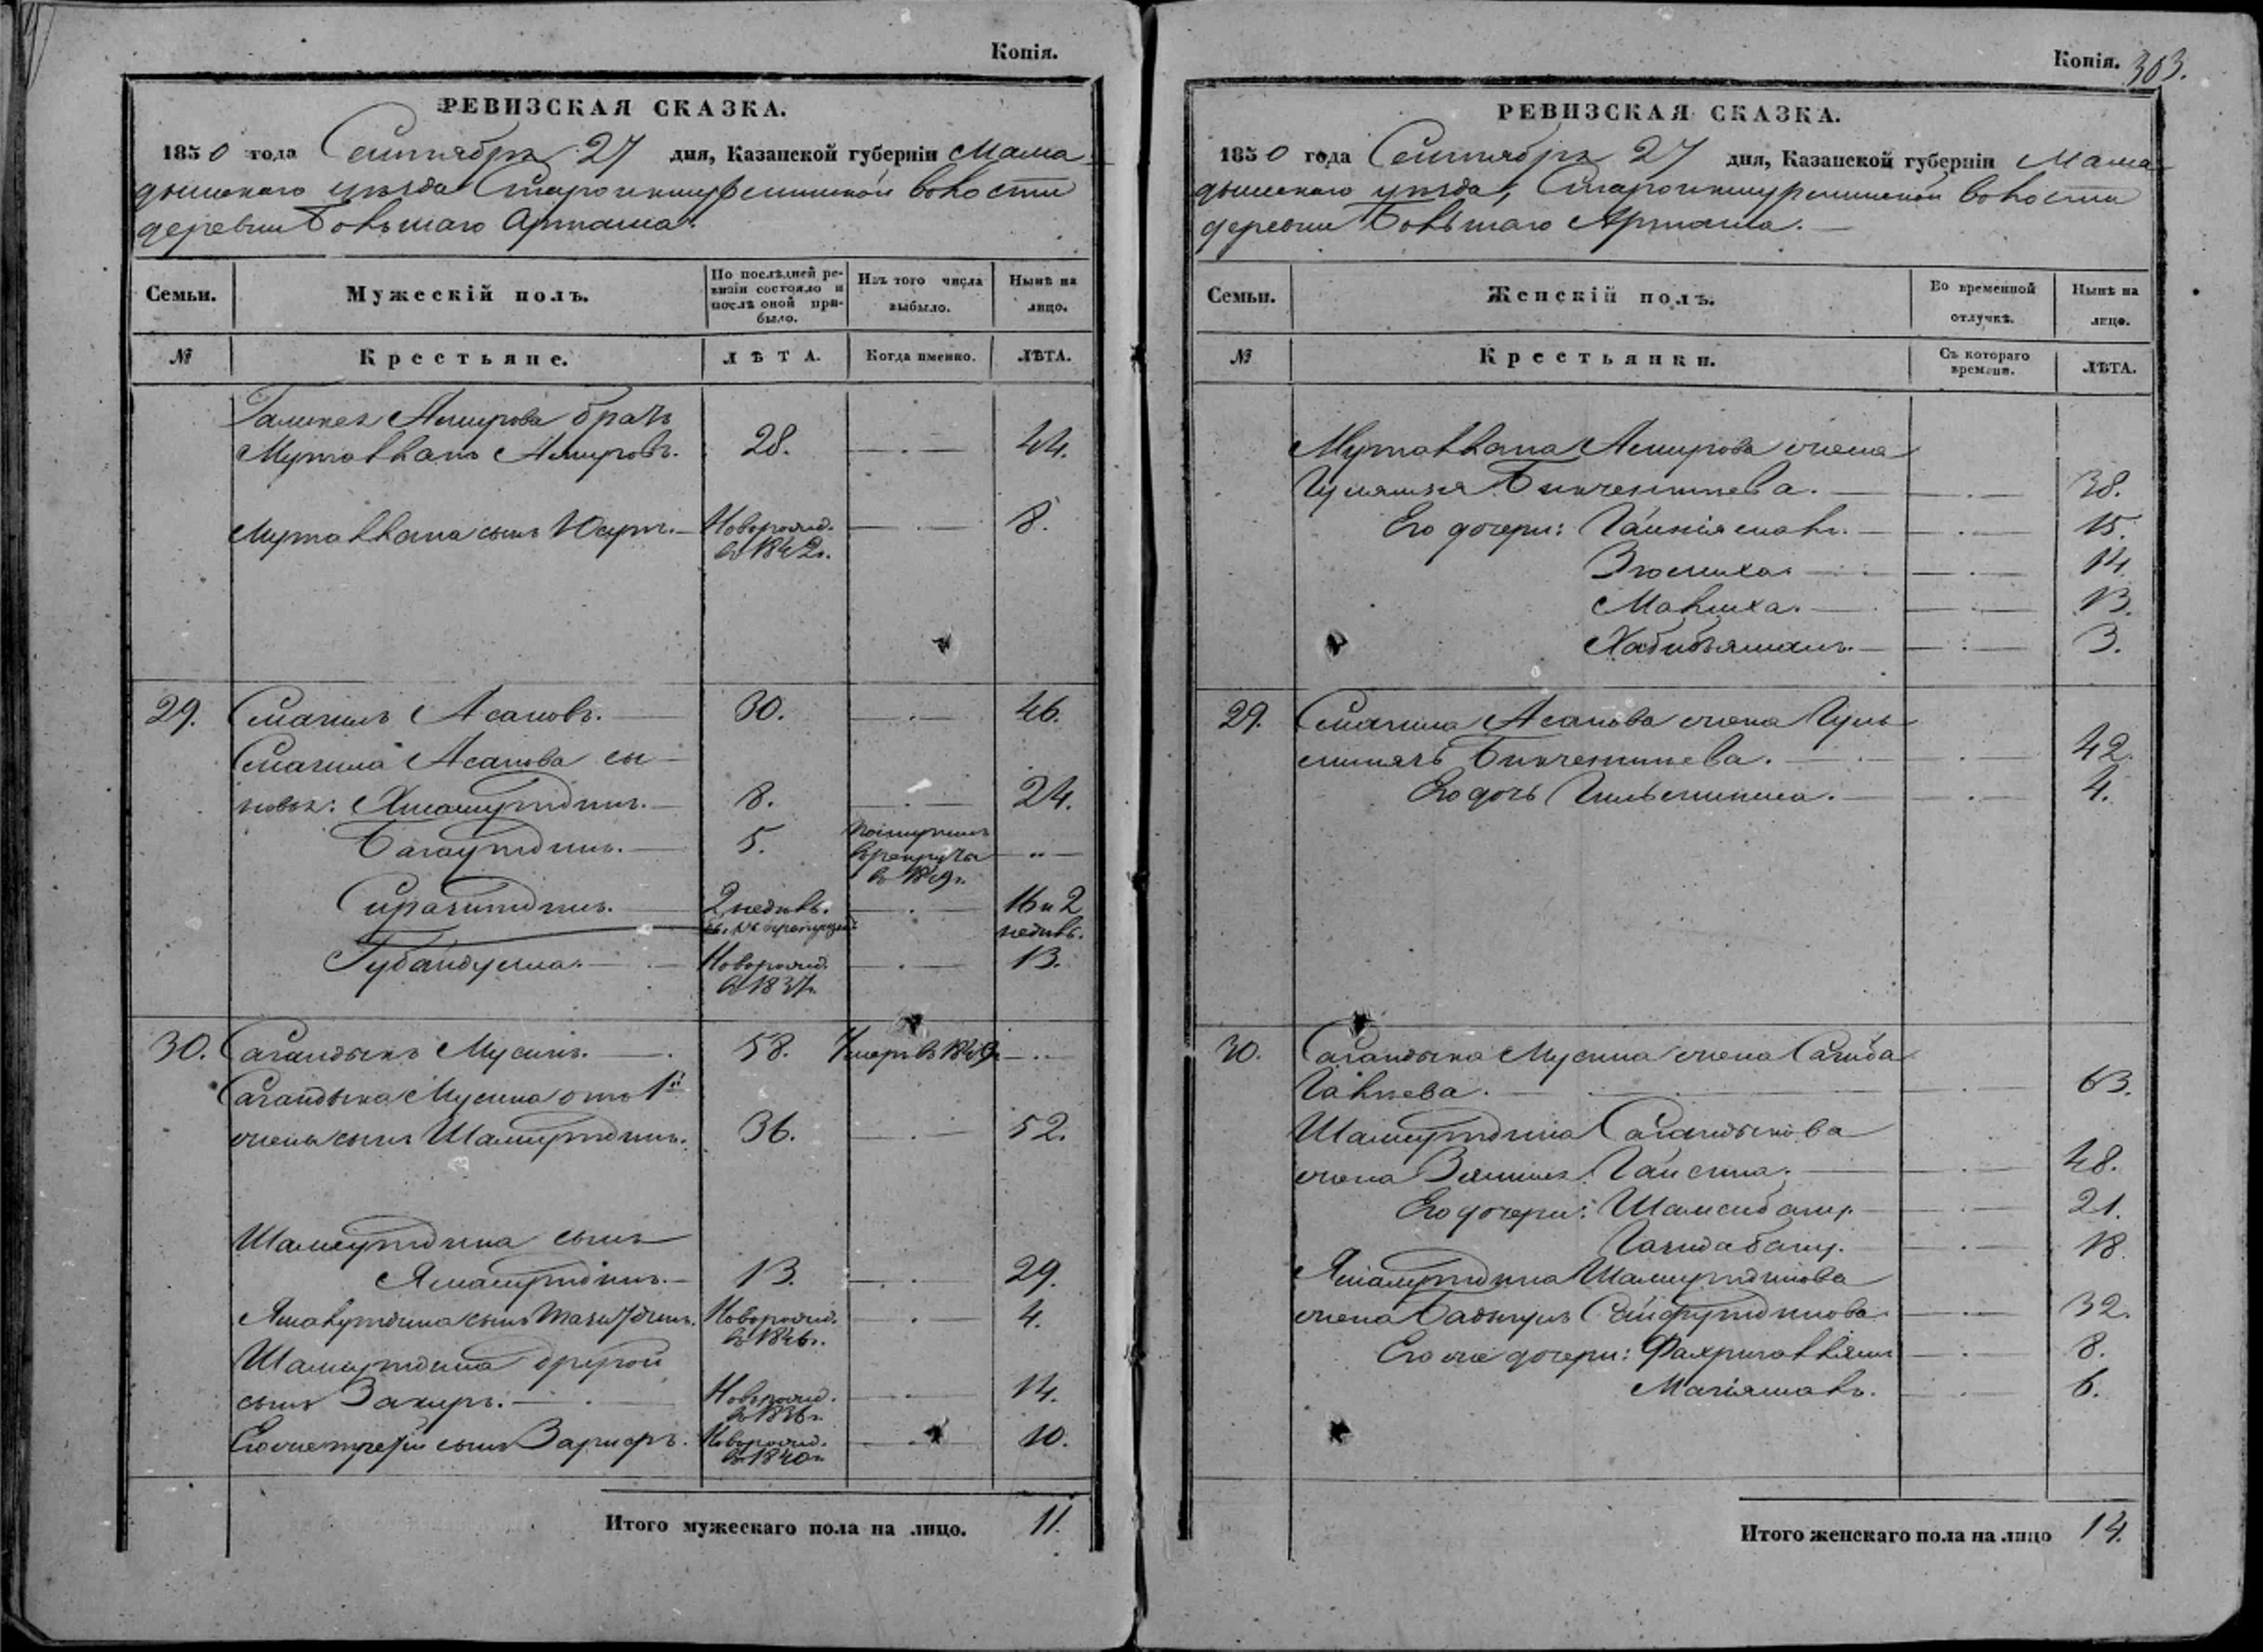 Копія.
РЕВИЗСКАЯ СКАЗКА.
1850 года Сентября 27 дня, Казанской губерніи Мама
дышскаго уѣзда Староикшурминской волости
деревни Большаго Арташа.
Семьи. Мужескій полъ. По послѣдней ре-визіи состояло и послѣ оной при-было. Изъ того числа выбыло. Нынѣ на лицо.
№ Крестьяне. ЛѢТА. Когда именно. ЛѢТА.
Амирова братъ
Муталлапъ Амировъ. 28. 44.
Муталлапа сынъ Юсупъ. Новорожд. 8.
въ 1842г.
29. Смагилъ Асановъ. 30. 46.
Смагила Асанова сы
новья: 8. 24.
Багаутдинъ. 5. поступилъ
въ рекруты
въ 1849г.
Сиразитдинъ. 2 недѣль. 16 и 2
недѣль.
Губайдулла. Новорожд. 13.
въ 1837г.
30. Сагандыкъ Мусинъ. 58. Умеръ въ 1849
Сагандыка Мусина отъ 1й
жены сынъ Шамсутдинъ. 36. 52.
Шамсутдина сынъ
Ямалутдинъ. 13. 29.
Ямалутдина сынъ Новорожд. 4.
въ 1846г.
Шамсутдина другой
сынъ Закиръ. Новорожд. 14.
въ 1836г.
Его же третій сынъ Зарифъ. Новорожд. 10.
въ 1840г.
Итого мужескаго пола на лицо. 11.
Копія. 303.
РЕВИЗСКАЯ СКАЗКА.
1850 года Сентября 27 дня, Казанской губерніи Мама
дышскаго уѣзда, Староикшурминской волости
деревни Большаго Арташа.
Семьи. Женскій полъ. Во временной отлучкѣ. Нынѣ на лицо.
№ Крестьянки. Съ котораго времени. ЛѢТА.
Муталлапа Амирова жена
Бикчентяева. 38.
Его дочери: 15.
14.
Малиха. 13.
Хабибъямалъ. 3.
29. Смагила Асанова жена Гуль
Бикчентяева. 42.
Его дочь 4.
30. Сагандыка Мусина жена Сагида
Галеева. 63.
Шамсутдина Сагандыкова
жена Гайсина. 48.
Его дочери: Шамсибану. 21.
18.
Ямалутдина Шамсутдинова
жена Сайфутдинова. 32.
Его же дочери: 8.
6.
Итого женскаго пола на лицо 14.